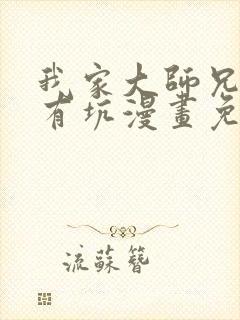 我家大師兄
有坑漫畫免
流蘇簪